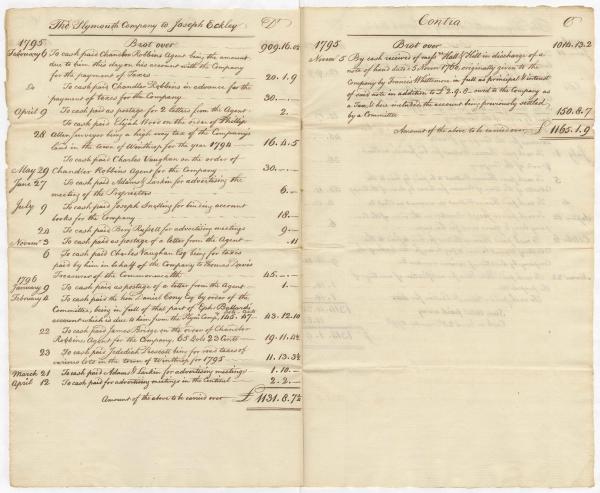 The Plymouth Company to Joseph Eckley Dr
1795 Brot over 909.16.0½
February 6 To cash paid Chandler Robbins Agent being the amount
due to him this day on his account with the Company
for the payment of Taxes 20.1.9
Do To cash paid Chandler Robbins in advance for the
payment of Taxes for the Company 30.—.—
April 9 To cash paid as postage for 2 letters from the Agent 2.—
To cash paid Elijah Wood on the order of Phillip
28 Allen Surveyor being a high way tax of the Company's
land in the town of Winthrop for the year 1794 16.4.5
To cash paid Charles Vaughan on the order of
May 29 Chandler Robbins Agent for the Company 30.—.—
June 27 To cash paid Adams & Larkin for advertising the
meeting of the Proprietors 6.—
July 9 To cash paid Joseph Snelling for binding account
books for the Company 18.—
24 To cash paid Benj Russell for advertising meetings 9.—
Novemr 3 To cash paid as postage of a letter from the Agent .11
6 To cash paid Charles Vaughan Esq being for taxes
paid by him in behalf of the Company to Thomas Davis
Treasurer of the Commonwealth 45.—.—
1796
January 9 To cash paid as postage of a letter from the Agent 1.—
February 4 To cash paid the hon Daniel Cony Esq by order of the
Committee, being in full of that part of Eph Ballard's
account which is due to him from the Plym Comy 145.47 43.12.10
22 To cash paid James Bridge on the order of Chandler
Robbins Agent for the Company. 65 Dols 22 Cents 19.11.4½
23 To cash paid Jedediah Prescott him for road taxes of
various lots in the town of Winthrop for 1795 11.13.3½
March 21 To cash paid Adams & Larkin for advertising meetings 1.10.—
April 12 To cash paid for advertising meetings in the Centinel 2.2.—
Amount of the above to be carried over £1131.8.7½
Contra Cr
1795 Brot over 1014.13.2
Novemr 5 By cash received of messrs Hall & Hill in discharge of a
note of hand dated 5 Novemr 1766, originally given to the
Company by Francis Whittemore in full as principal & interest
of said note in addition to £2.9.8 owed to the Company as
a Tax, & here included, the account being previously settled
by a Committee 150.8.7
Amount of the above to be carried over £1165.1.9